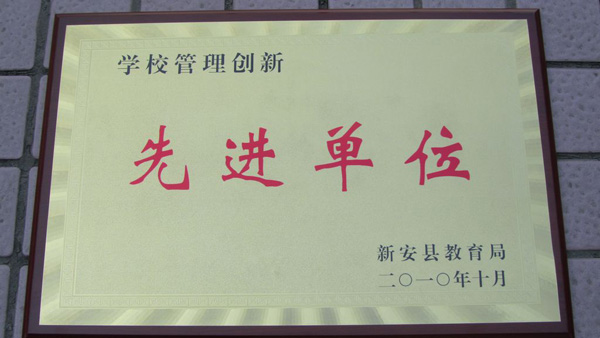 学校管理创新
先进单位
新安县教育局
二〇一〇年十月